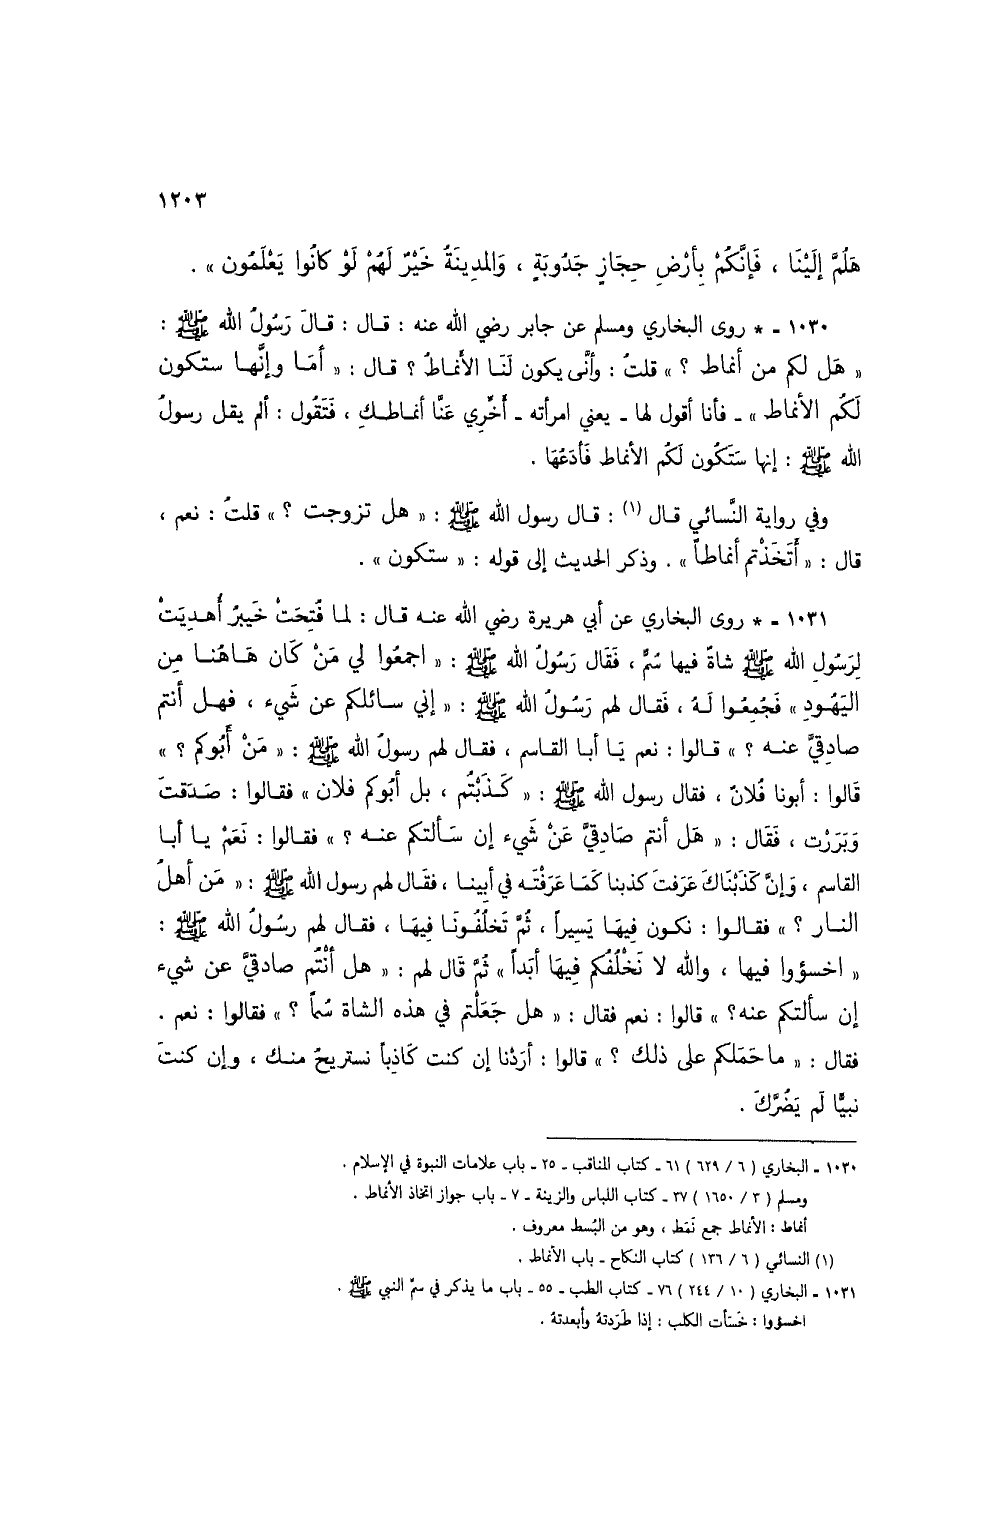 ١٢٠٣
هَلُمَّ إلَيْنَا ، فَإنَّكُمْ بِأرْضِ حِجَازٍ جَدُوبَةٍ ، وَالمدِينَةُ خَيْرٌ لَهُمْ لَوْ كانُوا يَعْلَمُون » .
١٠٣٠ ـ * روى البخاري ومسلم عن جابر رضي الله عنه : قال : قالَ رَسُولُ الله ﷺ :
« هَل لكم من أنماط ؟ » قلتُ : وأنَّى يكون لَنَا الأَنماطُ ؟ قال : « أمَا وإنَّها ستكون
لَكُم الأنماط » ـ فأنا أقول لها ـ يعني امرأته ـ أَخِّرِي عَنَّا أنماطكِ ، فَتَقُول : ألم يقل رسولُ
الله ﷺ : إنها سَتَكُون لَكُم الأنماط فَأدَعُهَا .
وفي رواية النَّسائي قال (١) : قال رسول الله ﷺ : « هل تزوجت ؟ » قلتُ : نعم ،
قال : « أَتَخَذْتم أنماطاً » . وذكر الحديث إلى قوله : « ستكون » .
١٠٣١ ـ * روى البخاري عن أبي هريرة رضي الله عنه قال : لما فُتِحَتْ خَيبرُ أُهدِيَتْ
لِرَسُولِ الله ﷺ شاةٌ فيها سُمٌّ ، فَقَال رَسُولُ الله ﷺ : « اجمعُوا لي مَنْ كَان هَاهُنا مِن
اليَهُودِ » فَجُمِعُوا لَهُ ، فَقال لهم رَسُولُ الله ﷺ : « إني سائلكم عن شَيء ، فهل أنتم
صادِقيَّ عنه ؟ » قالوا : نعم يَا أبا القاسم ، فقال لهم رسولُ الله ﷺ : « مَنْ أَبُوكم ؟ »
قَالوا : أبونا فُلانٌ ، فقال رسول الله ﷺ : « كَذَبْتُم ، بل أبُوكم فلان » فقالوا : صَدَقتَ
وَبَرَرْت ، فَقَال : « هَل أنتم صَادِقيَّ عَنْ شَيء إن سَألتكم عنه ؟ » فقالوا : نَعَمْ يا أبا
القاسم ، وَإنْ كَذَبْنَاكَ عَرَفتَ كذبنا كَمَا عَرَفْتَه في أبينا ، فقَال لهم رسول الله ﷺ : « مَن أهلُ
النار ؟ » فقالوا : نكون فِيهَا يَسِيراً ، ثُمَّ تَخلُفُونَا فِيهَا ، فقال لهم رسُولُ الله ﷺ :
« اخسؤوا فيها ، والله لا نَخْلُفُكم فِيهَا أبَداً » ثُمَّ قَال لهم : « هل أنْتُم صادقيَّ عن شيء
إن سألتكم عنه؟ » قالوا : نعم فقال : « هل جَعَلْتم في هذه الشاة سُماً ؟ » فقالوا : نعم .
فقال : « ما حَمَلكم على ذلك ؟ » قالوا : أرَدْنا إن كنت كَاذِباً نستريحُ منك ، وإن كنتَ
نبيًّا لَم يَضُرَّكَ .
١٠٣٠ ـ البخاري ( ٦ / ٦٢٩ ) ٦١ ـ كتاب المناقب ـ ٢٥ ـ باب علامات النبوة في الإسلام .
ومسلم ( ٣ / ١٦٥٠ ) ٣٧ ـ كتاب اللباس والزينة ـ ٧ ـ باب جواز اتخاذ الأنماط .
أنماط : الأنماط جمع نَمَط ، وهو من البُسط معروف .
(١) النسائي ( ٦ / ١٣٦ ) كتاب النكاح ـ باب الأنماط .
١٠٣١ ـ البخاري ( ١٠ / ٢٤٤ ) ٧٦ ـ كتاب الطب ـ ٥٥ ـ باب ما يذكر في سمِّ النبي ﷺ .
اخسؤوا : خَسَأت الكلب : إذا طَرَدتهُ وأبعدتهُ .